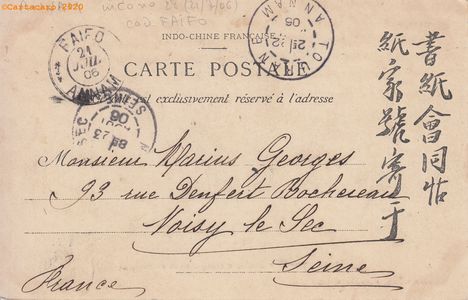 ©Cartacarp©2020
(21/7/06)
cad FAIFO
FAIFO
21
JUIL
06
ANNAM
TOURANE
21
06
ANNAM
INDO-CHINE FRANÇAISE
CARTE POSTALE
exclusivement réservé à l'adresse
SEINE
23
06
SEC
Monsieur Marius Georges
93 rue Denfert Rochereau
Noisy le Sec
Seine
France
書紙會同帖
紙家號寄于